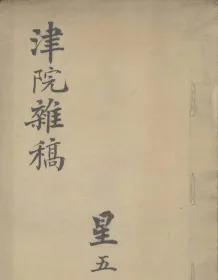 津院雜稿
星五